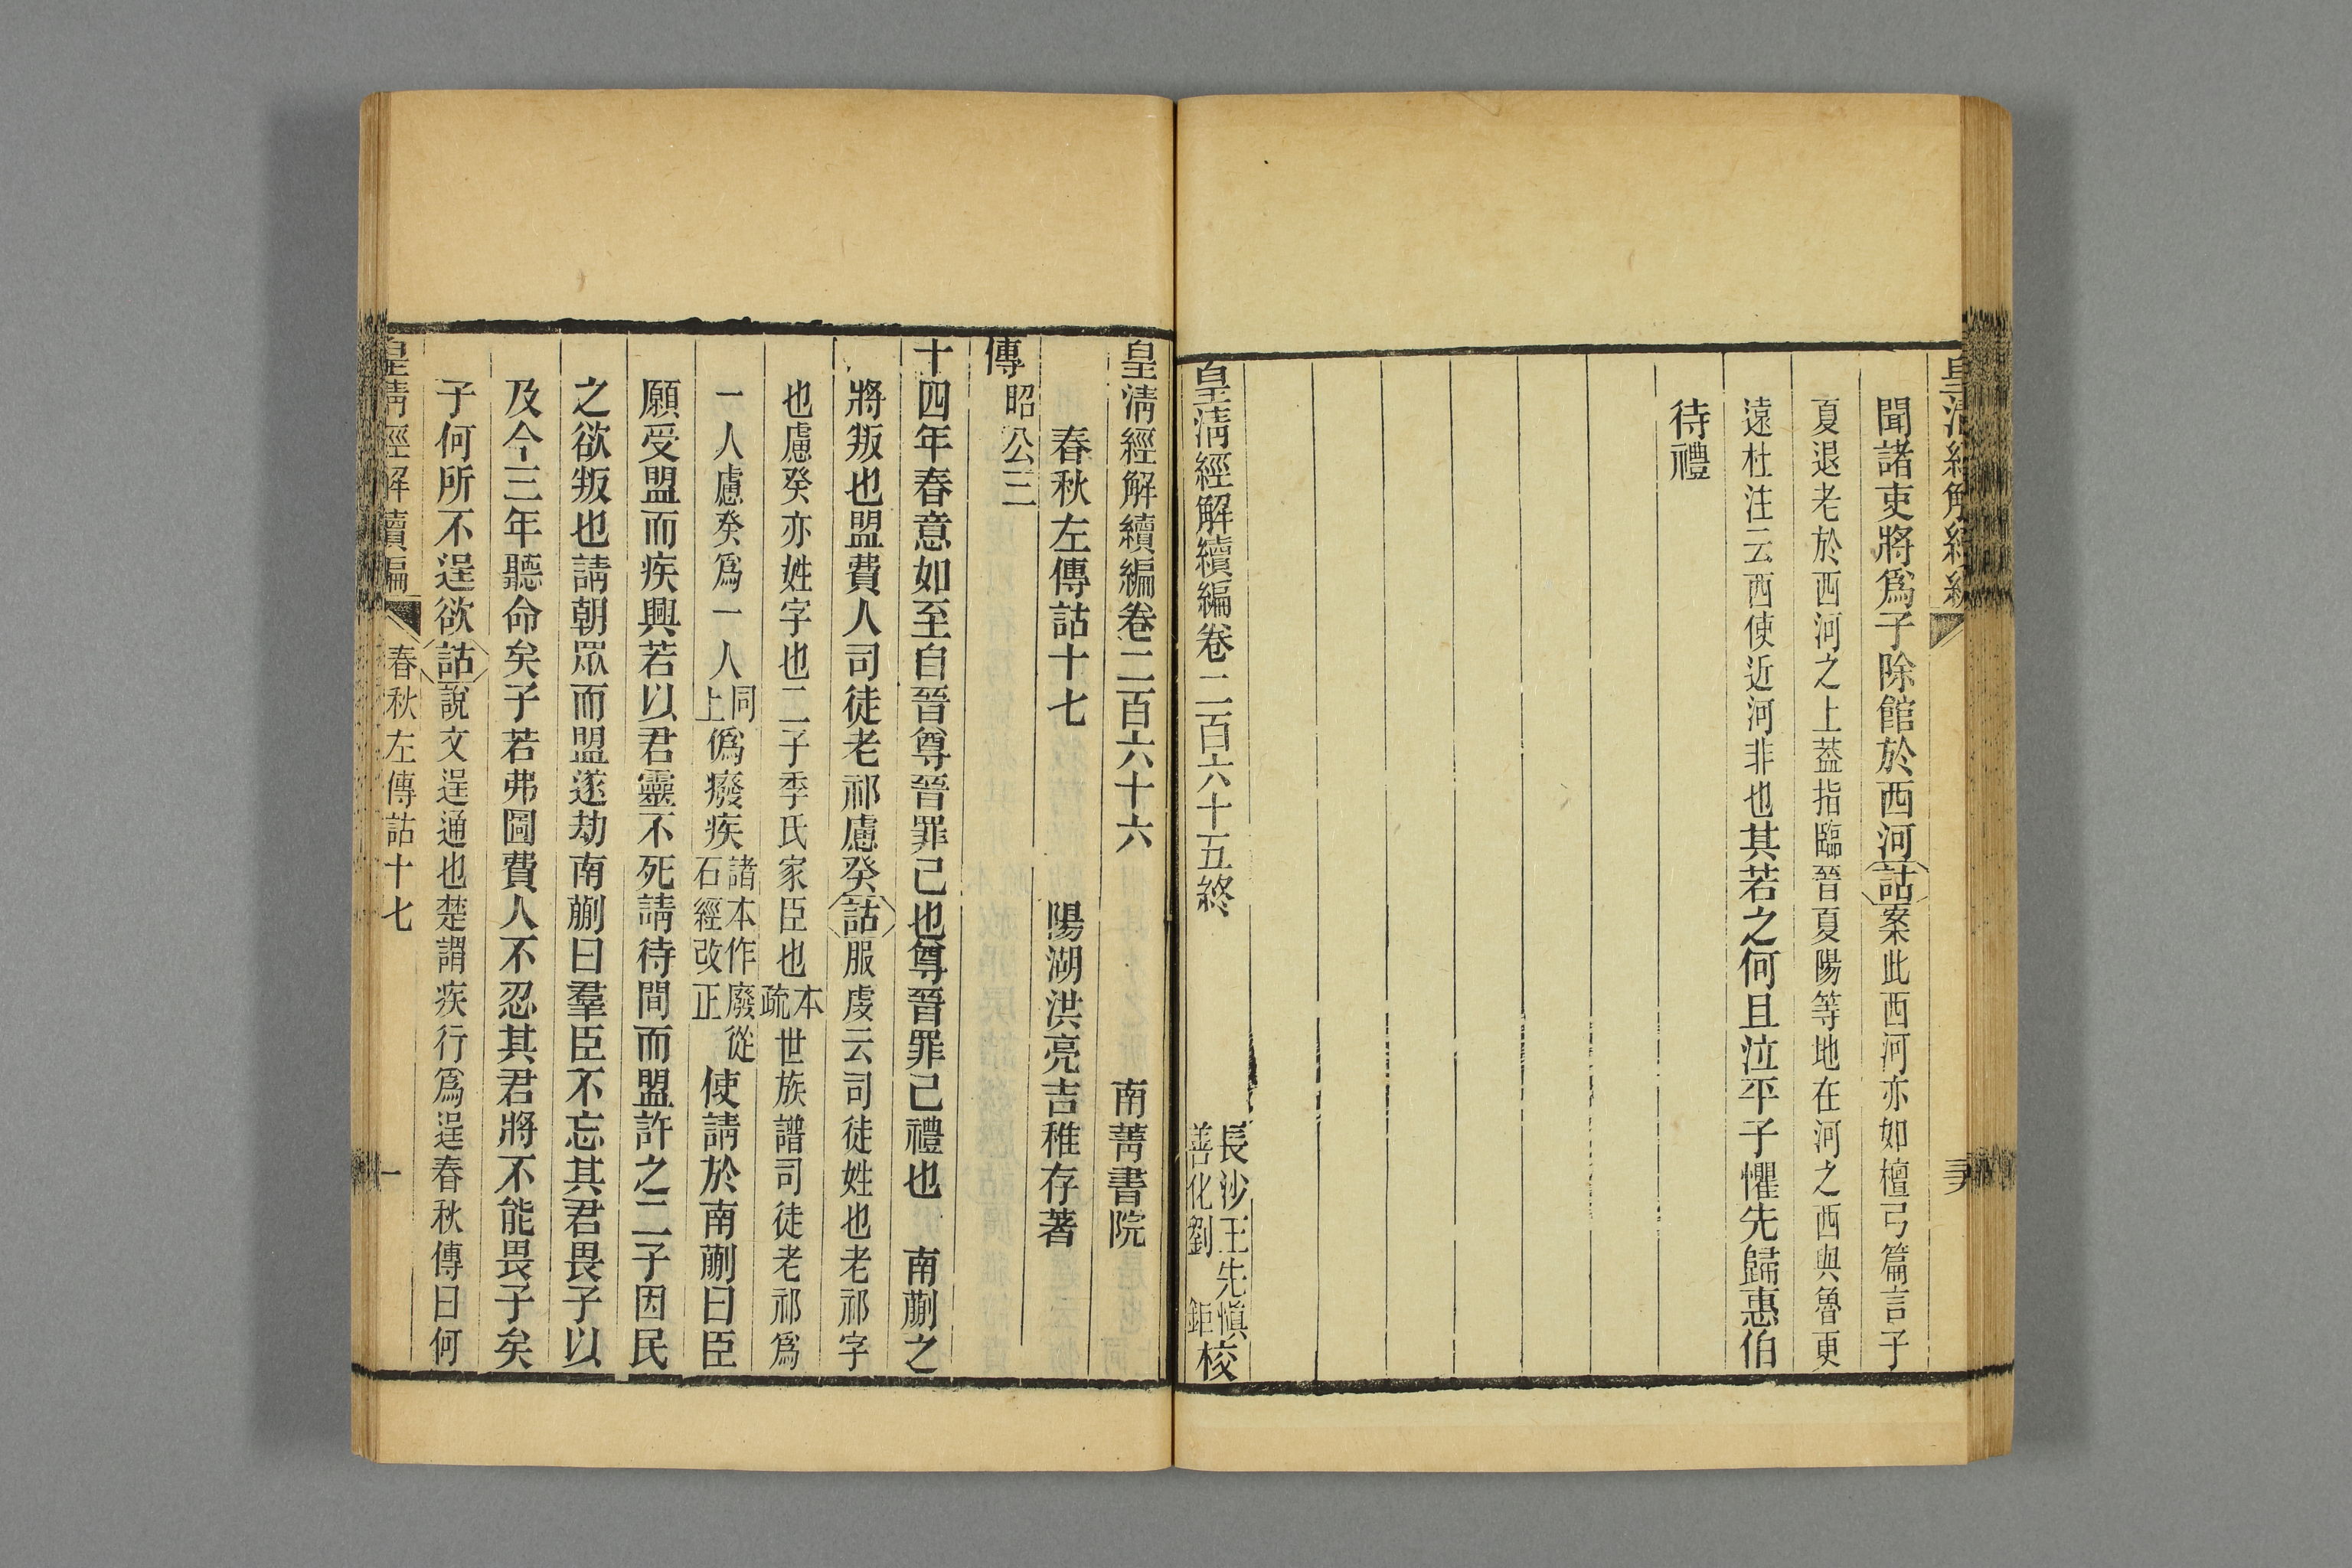 聞諸吏將爲子除館於西河詁案此西河亦如檀弓篇言子
夏退老於西河之上葢指臨晉夏陽等地在河之西與魯更
遠杜注云西使近河非也其若之何且泣平子懼先歸惠伯
待禮
皇淸經解續編卷二百六十五終
長沙王先愼
善化劉鉅
校
皇淸經解續編卷二百六十六
南菁書院
春秋左傳詁十七
陽湖洪亮吉稚存著
傳
昭公三
十四年春意如至自晉尊晉罪己也尊晉罪己禮也 南蒯之
將叛也盟費人司徒老祁慮癸詁服虔云司徒姓也老祁字
也慮癸亦姓字也二子季氏家臣也本疏世族譜司徒老祁爲
一人慮癸爲一人同上僞癈疾諸本作廢從石經改正使請於南蒯曰臣
願受盟而疾興若以君靈不死請待間而盟許之二子因民
之欲叛也請朝眾而盟遂劫南蒯曰羣臣不忘其君畏子以
及今三年聽命矣子若弗圖費人不忍其君將不能畏子矣
子何所不逞欲詁說文逞通也楚謂疾行爲逞春秋傳曰何
皇淸經解續編
春秋左傳詁十七
一